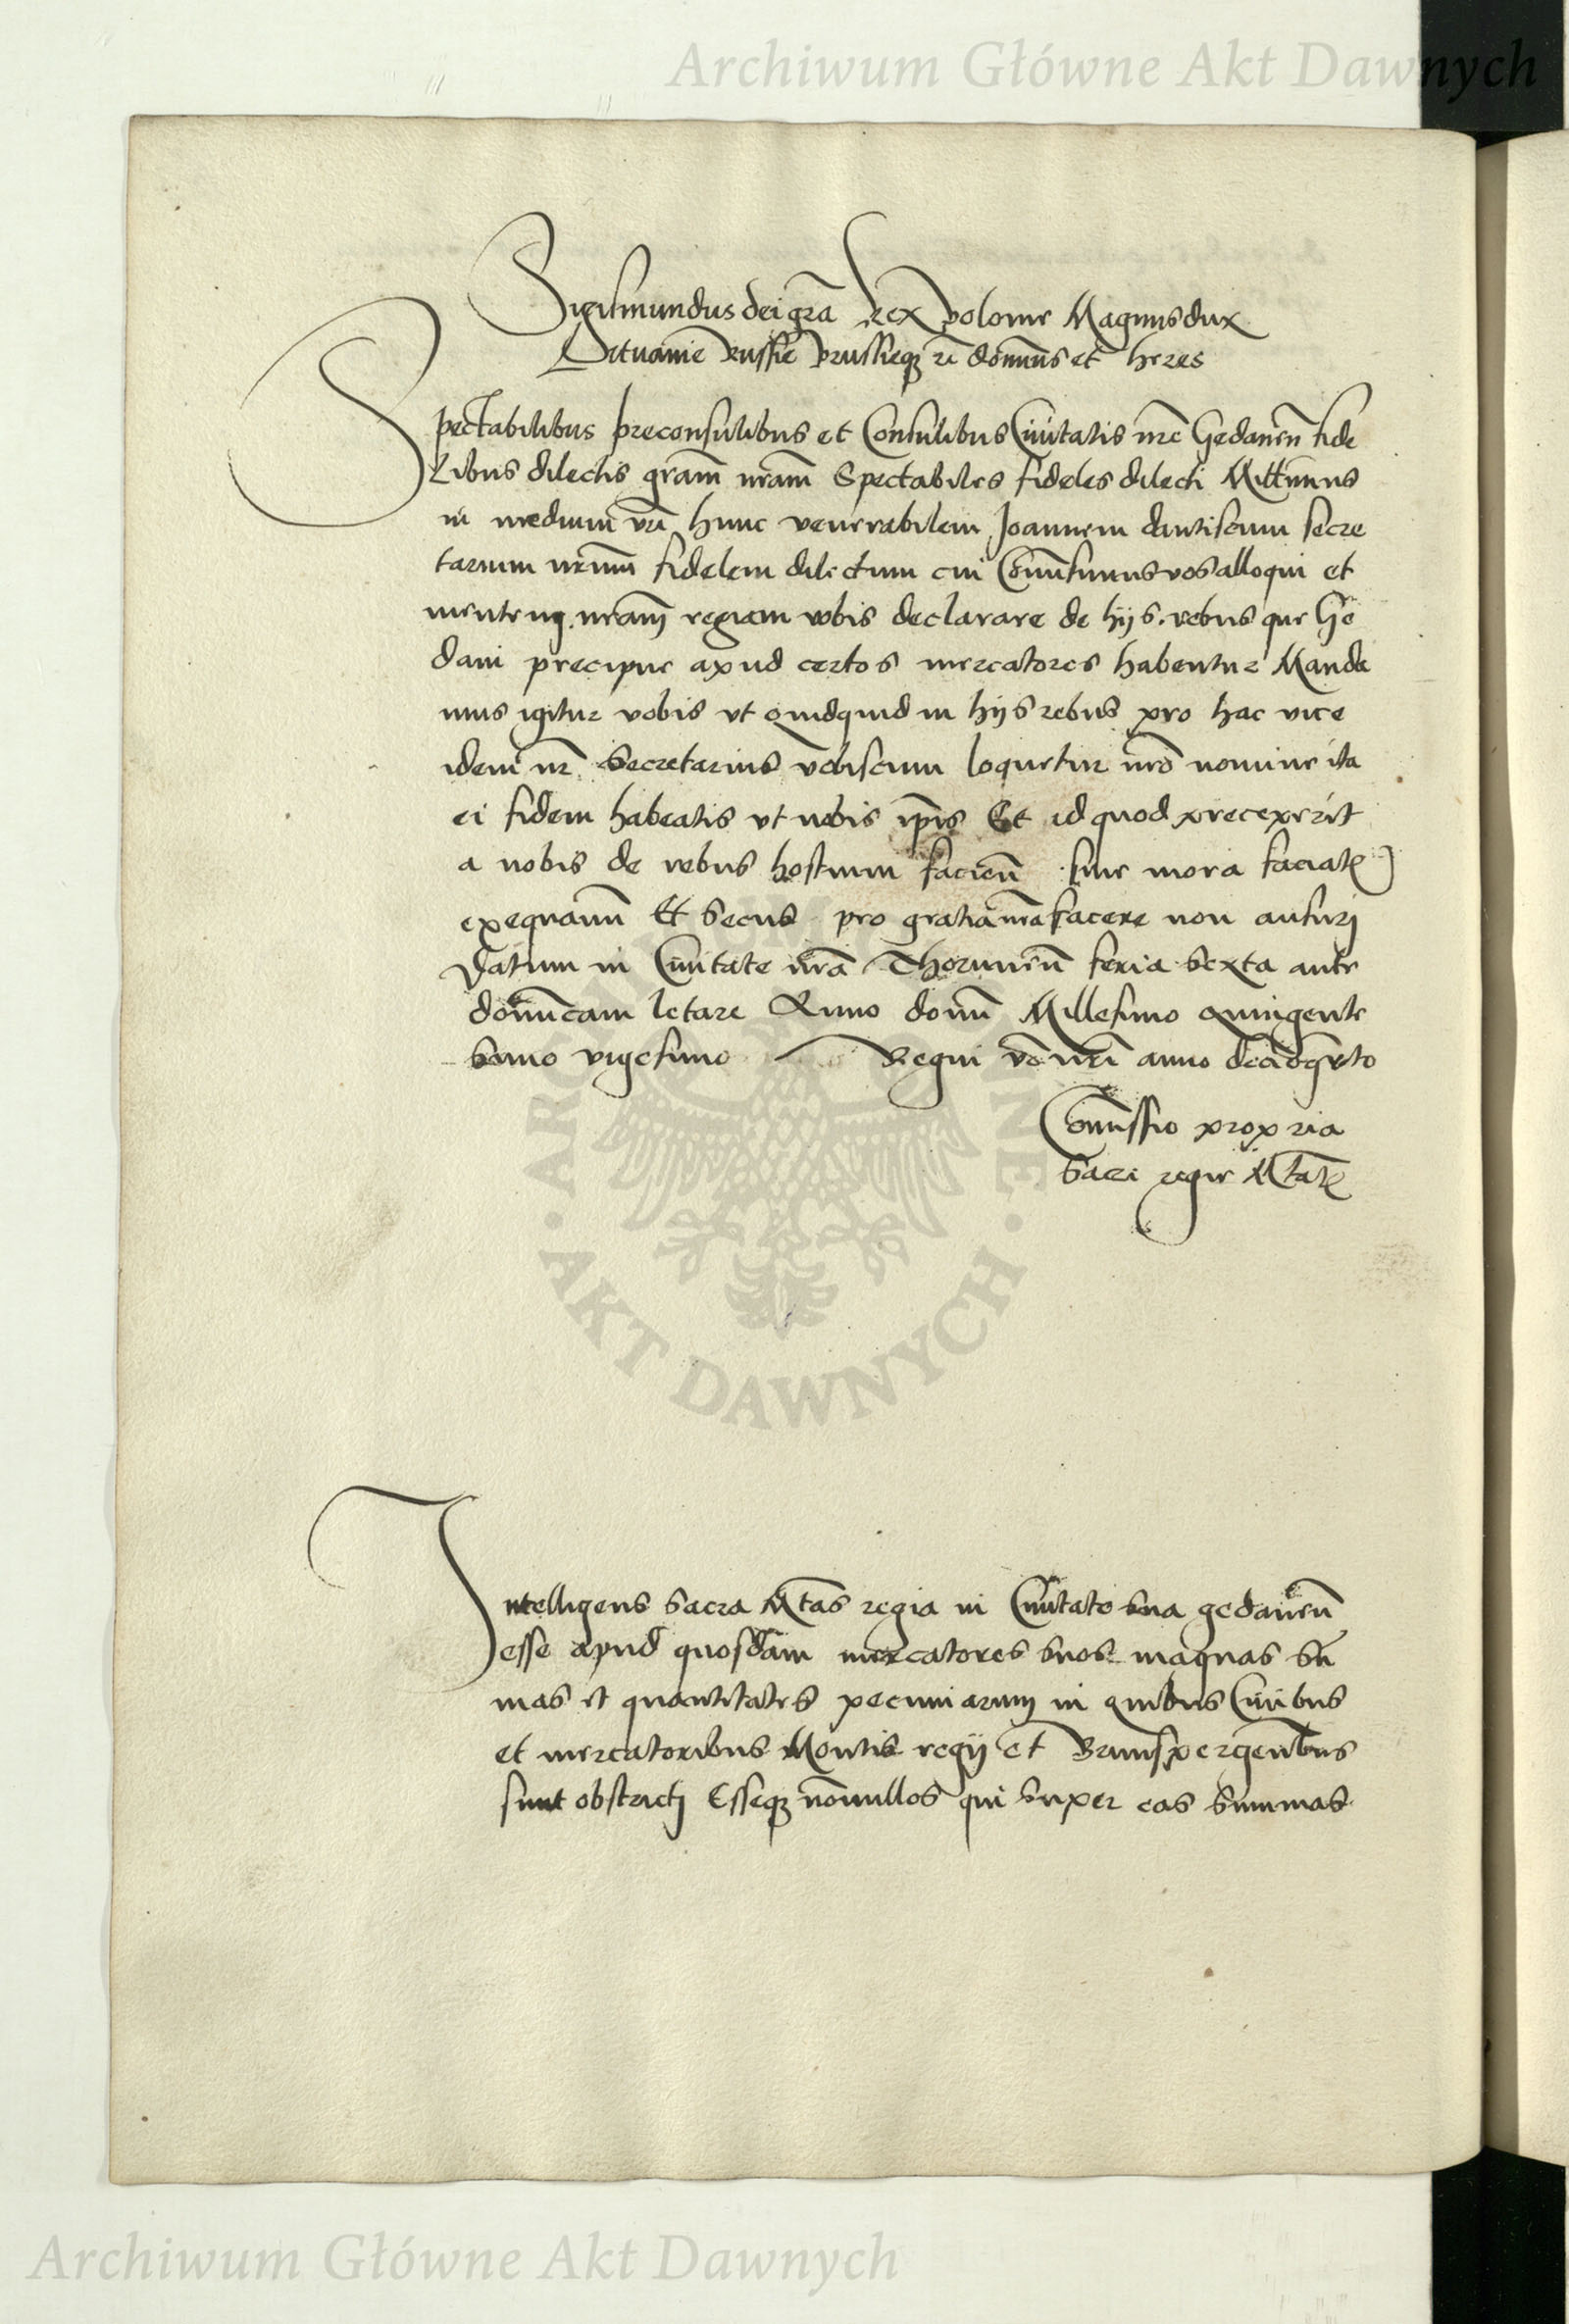 Archiwum Główne Akt Dawnych
Sigismundus dei gra Rex Polonie Magnus dux
Lituanie Russie Prussieqz zc domnus et heres
Spectabilibus preconsulibus et Consulibus Civitatis nre Gedanen fide
libus dilectis gram nram Spectabiles fideles dilecti Mittimus
in medium vri hunc venerabilem Joannem dantiscum secre
tarium nrum fidelem dilectum cui Comisimus vos alloqui et
mentemq nram regiam vobis declarare de hijs rebus que Ge
dani precipue apud certos mercatores habentur Manda
mus igitur vobis vt quidquid in hijs rebus pro hac vice
idem nr Secretarius vobiscum loquetur nro nomine ita
ei fidem habeatis vt nobis ipis Et id quod preceperit
a nobis de rebus hostium facien sine mora faciatis
exequamini Et secus pro gratia nra facere non ausuri
Datum in Civitate nra Thorunen feria sexta ante
domicam letare Anno domi Millesimo quingente
simo vigesimo Regni vo nri anno decioqrto
Comissio propria
Sacre regie Mtatis
Intelligens Sacra Mtas regia in Civitate sua gedanen
esse apud quosdam mercatores suos magnas su
mas et quantitates pecuniarum in quibus Civibus
et mercatoribus Montis regij et Brunspergentibus
sunt obstricti Esseqz nonnullos qui super eas summas
ARCHIWUM GŁÓWNE · AKT DAWNYCH ·
Archiwum Główne Akt Dawnych